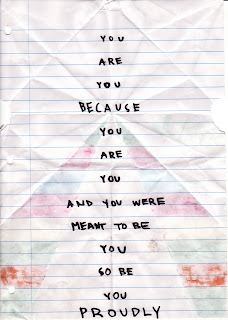 YOU
ARE
YOU
BECAUSE
YOU
ARE
YOU
AND YOU WERE
MEANT TO BE
YOU
SO BE
YOU
PROUDLY